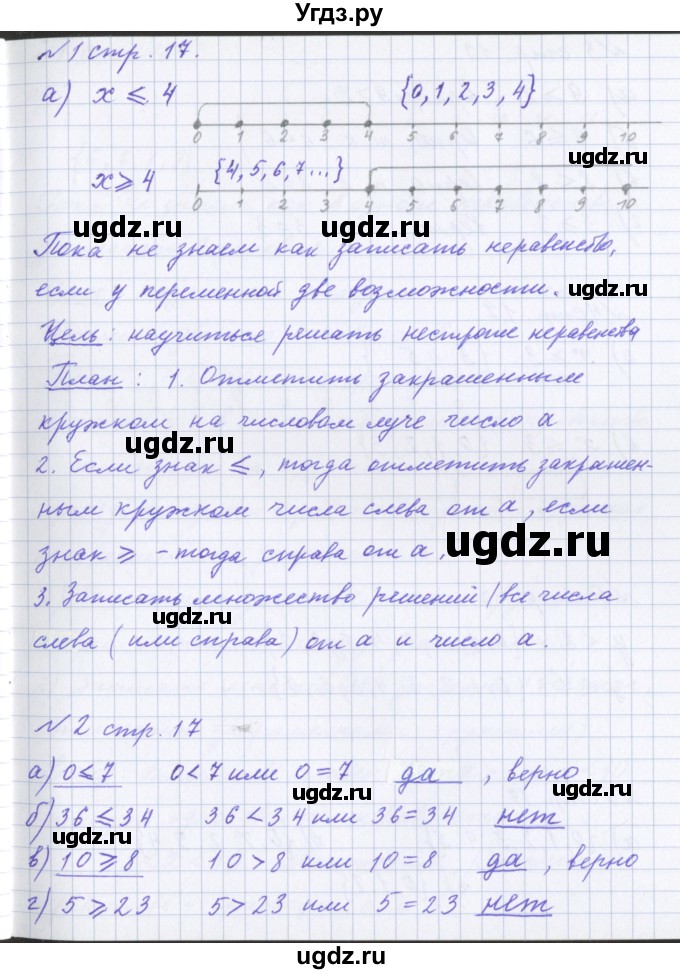 Угдз.ру
№1 стр. 17.
а) x ≤ 4 {0, 1, 2, 3, 4}
0 1 2 3 4 5 6 7 8 9 10
ugdz.ru
x ≥ 4 {4, 5, 6, 7...}
0 1 2 3 4 5 6 7 8 9 10
ugdz.ru ugdz.ru
Пока не знаем как записать неравенство,
если у переменной две возможности.
ugdz.ru
Цель: научиться решать нестрогие неравенства
План: 1. Отметить закрашенным
кружком на числовом луче число a
ugdz.ru
2. Если знак ≤, тогда отметить закрашен-
ным кружком числа слева от a, если
знак ≥ - тогда справа от a,
ugdz.ru
3. Записать множество решений /все числа
слева (или справа) от a и число a.
№2 стр. 17
а) 0 ≤ 7 0 < 7 или 0 = 7 да, верно
ugdz.ru
б) 36 ≤ 34 36 < 34 или 36 = 34 нет
ugdz.ru
в) 10 ≥ 8 10 > 8 или 10 = 8 да, верно
г) 5 ≥ 23 5 > 23 или 5 = 23 нет
ugdz.ru ugdz.ru